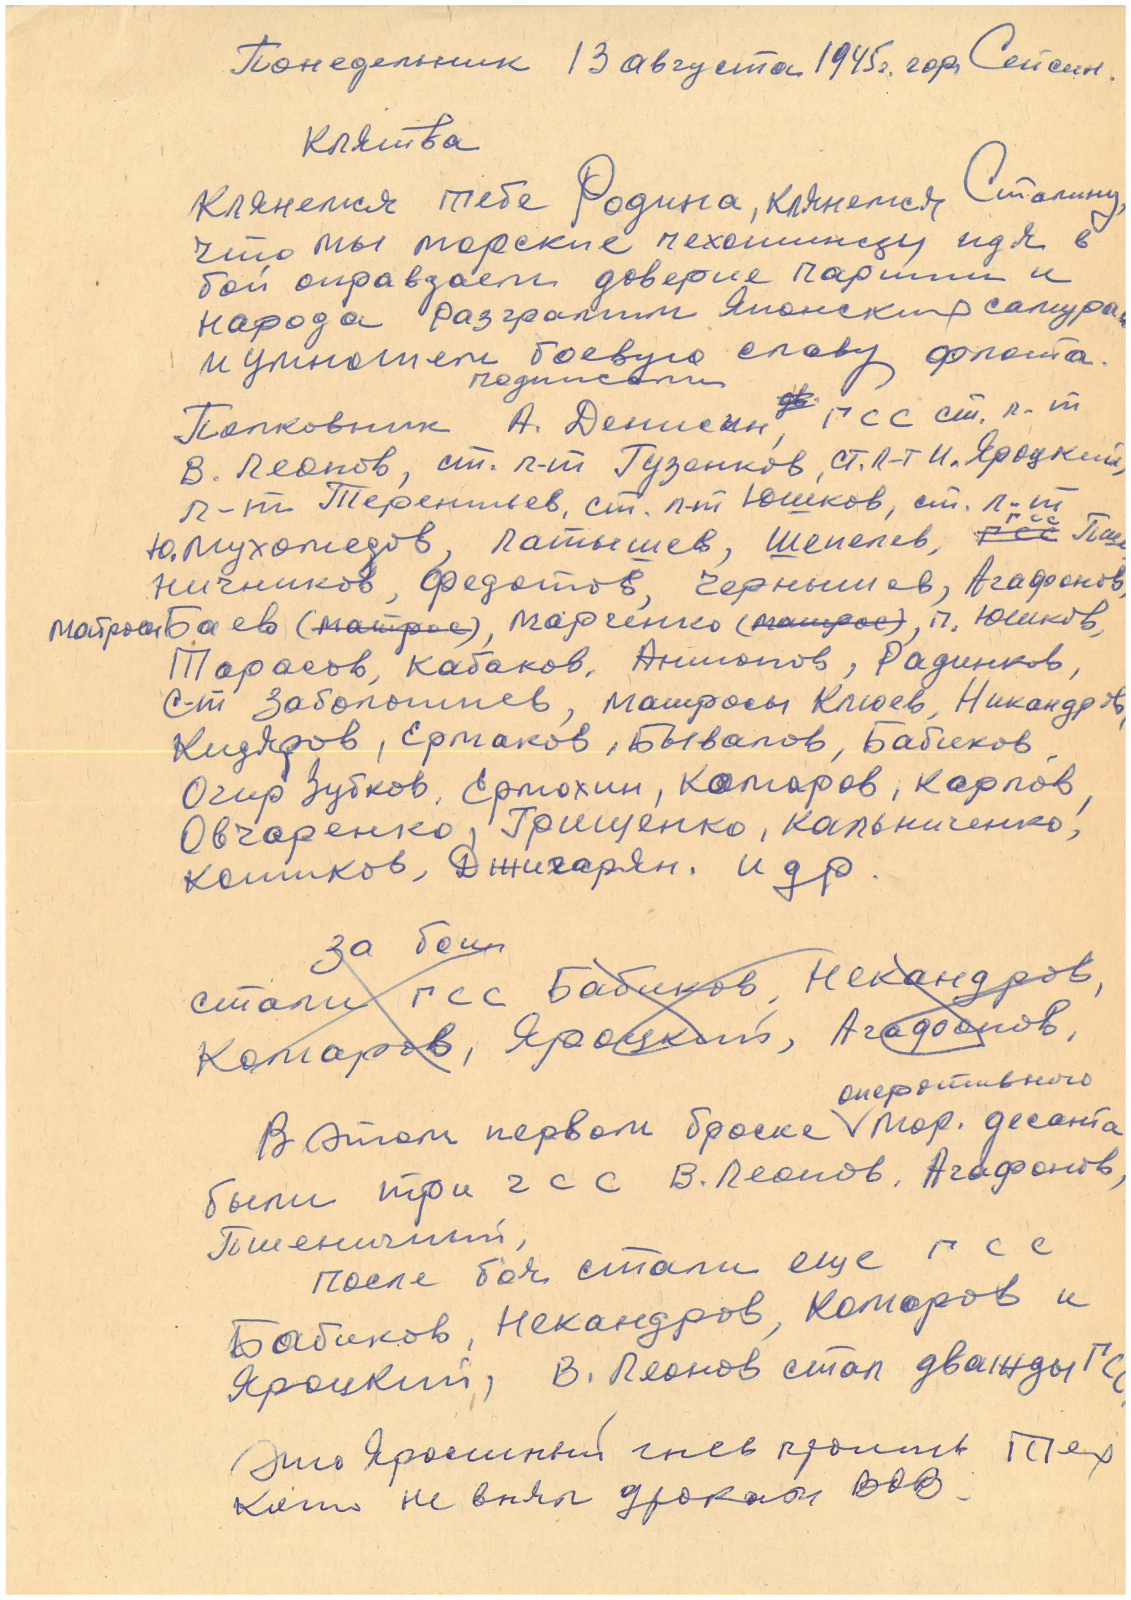 Понедельник 13 августа 1945г. гор Сейсин.
Клятва
Клянемся тебе Родина, клянемся Сталину,
что мы морские пехотинцы идя в
бой оправдаем доверие партии и
народа разгромим Японских самураев
и умножем боевую славу флота.
подписали
Полковник А. Денисин, ГСС ст. л-т
В. Леонов, ст. л-т Гузенков, ст. л-т И. Яроцкий,
л-т Терентьев, ст. л-т Юшков, ст. л-т
Ю. Мухомедов, Латышев, Шепелев, ГСС Пше
ничников, Федотов, Чернышев, Агафонов,
матросы Баев (матрос), Марченко (матрос), П. Юшков,
Тарасов, Кабаков, Антонов, Радинков,
с-т Заболотнев, матросы Клюев, Никандров,
Кидяров, Ермаков, Бывалов, Бабиков
Огир Зубков, Ермохин, Комаров, Карпов,
Овчаренко, Грищенко, Кальниченко,
Кошков, Джигарян. и др.
за бои
стали ГСС Бабиков, Некандров,
Комаров, Яроцкий, Агафонов,
оперативного
В этом первом броске мор. десанта
были три гсс В. Леонов, Агафонов,
Пшеничный,
после боя стали еще ГСС
Бабиков, Некандров, Комаров и
Яроцкий, В. Леонов стал дважды ГСС,
Это Яростный гнев против Тех
кто не внял урокам ВОВ.